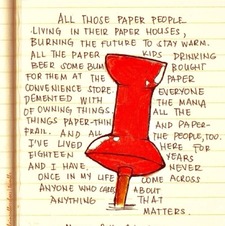 ALL THOSE PAPER PEOPLE
LIVING IN THEIR PAPER HOUSES,
BURNING THE FUTURE TO STAY WARM.
ALL THE PAPER KIDS DRINKING
BEER SOME BUM BOUGHT
FOR THEM AT THE PAPER
CONVENIENCE STORE. EVERYONE
DEMENTED WITH THE MANIA
OF OWNING THINGS. ALL THE
THINGS PAPER-THIN AND PAPER-
FRAIL. AND ALL THE PEOPLE, TOO.
I'VE LIVED HERE FOR
EIGHTEEN YEARS
AND I HAVE NEVER
ONCE IN MY LIFE COME ACROSS
ANYONE WHO CARES ABOUT
ANYTHING THAT
MATTERS.